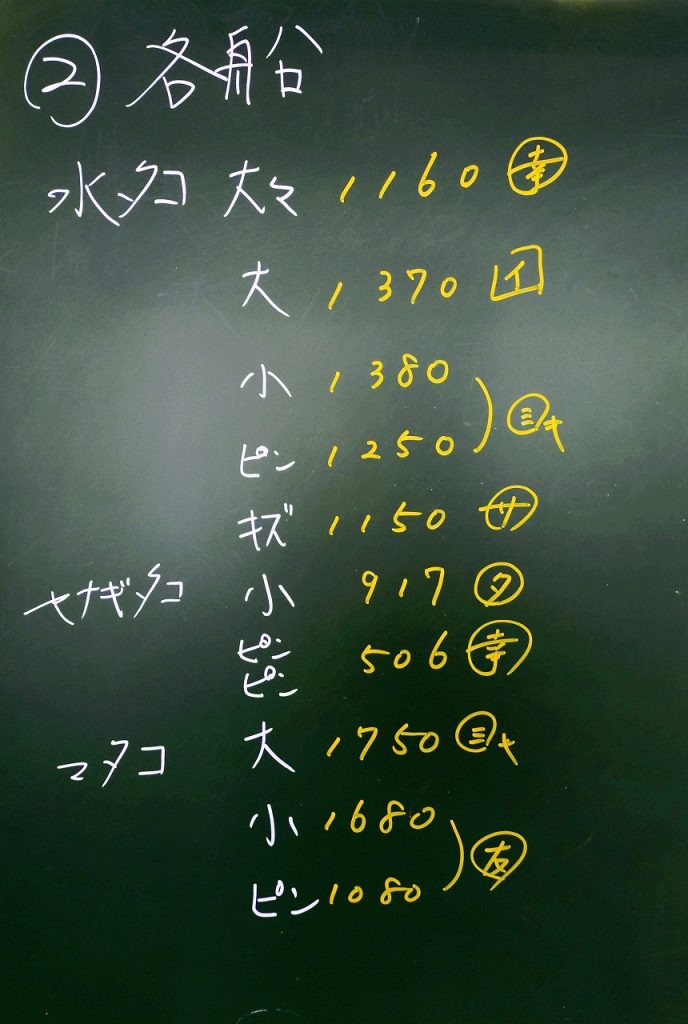 ② 各船
水タコ 大々 1160 ㊵幸
大 1370 イ
小 1380
ピン 1250 ミキ
キズ 1150 サ
ヤナギタコ 小 917 タ
ピンピン 506 幸
マタコ 大 1750 ミキ
小 1680
ピン 1080 友